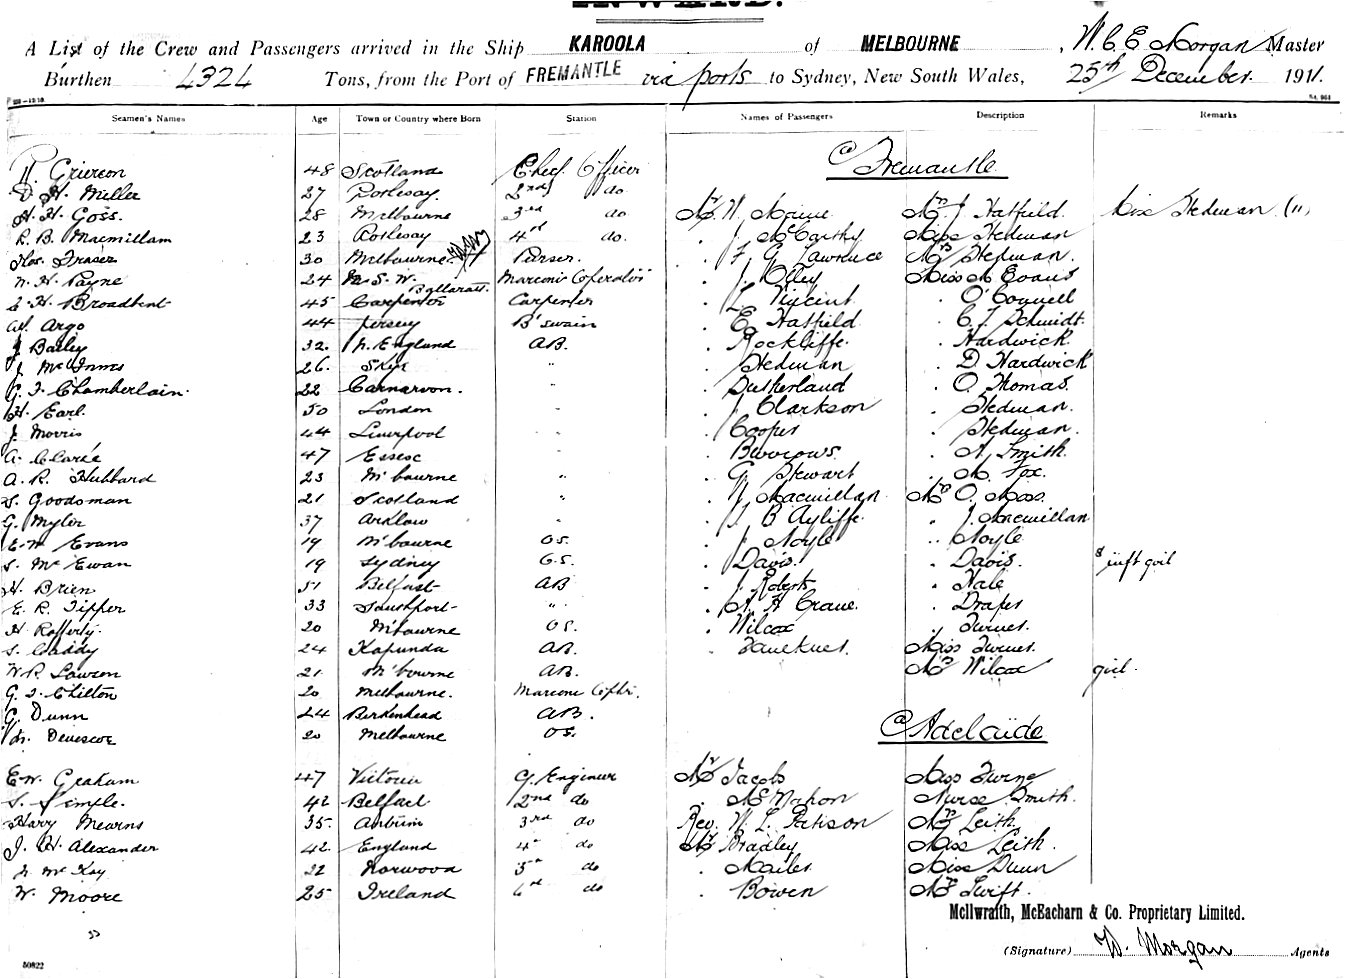 INWARD.
A List of the Crew and Passengers arrived in the Ship KAROOLA of MELBOURNE, W. C. E Morgan Master
Burthen 4324 Tons, from the Port of FREMANTLE via ports to Sydney, New South Wales, 25th December 1911.
Seamen's Names Age Town or Country where Born Station Names of Passengers Description Remarks
Fremantle
Grierson 48 Scotland Chief Officer
D. H. Miller 27 Rothesay 2nd do
H. H. Goss. 28 Melbourne 3rd do Mr W. Mr J Hatfield Miss Stedman (11)
R. B. Macmillan 23 Rothesay 4th do. J McCarthy Miss Stedman
Thos. Fraser 30 Melbourne Purser. F G Lawrence Mrs Stedman.
Payne 24 N.S.W. Ballarat Marconi Operator J. Olley Miss M Evans
Broadbent 45 Carpenter Carpenter Vincent O'Connell
Argo 44 Jersey B'swain E Hatfield C. F. Schmidt.
J Bailey 32. N. England AB. Rockliffe. Hardwick.
J McInnes 26. Skye " Stedman D Hardwick
G. F. Chamberlain. 22 Carnarvon. " Sutherland O. Thomas.
H. Earl. 50 London " J Clarkson Stedman.
J. Morris 44 Liverpool " Cooper Stedman.
A. Clarke 47 Essex " Burrows A. Smith.
A. R. Hubbard 23 M'bourne " G. Stewart M. Fox.
S. Goodsman 21 Scotland " J Macmillan Mrs O. Moss.
G. Myler 37 Arklow " J. B Ayliffe. J. Macmillan
E. W Evans 19 M'bourne OS. J Noyle Noyle
S. McEwan 19 Sydney O.S. Davis. Davis.
H. Brien 51 Belfast AB J. Roberts Hale
E. R. Tipper 33 Southport " A. H Crane. Draper
H Rafferty. 20 M'bourne OS. Wilcox Turner.
S. Caddy 24 Kapunda AB. Faulkner. Miss Turner.
W. R. Lawson 21. M'bourne AB. Mrs Wilcox girl.
G. S. Chilton 20 Melbourne. Marconi
G. Dunn 24 Birkenhead AB.
20 Melbourne OS. Adelaide
E. W. Graham 47 Victoria C. Engineer Mr Jacobs Miss Turne
S. Simple. 42 Belfast 2nd do McMahon Nurse Smith.
Harry Mearns 35. Antrim 3rd do Rev. W. L. Patison Mrs Leith
J. H. Alexander 42. England 4th do Mr Bradley Miss Leith.
McKay 22 Norwood 5th do Mailes Miss Dunn
W. Moore 25 Ireland 6th do Bowen Mrs Swift.
McIlwraith, McEacharn & Co. Proprietary Limited.
(Signature) W. Morgan Agents
50822